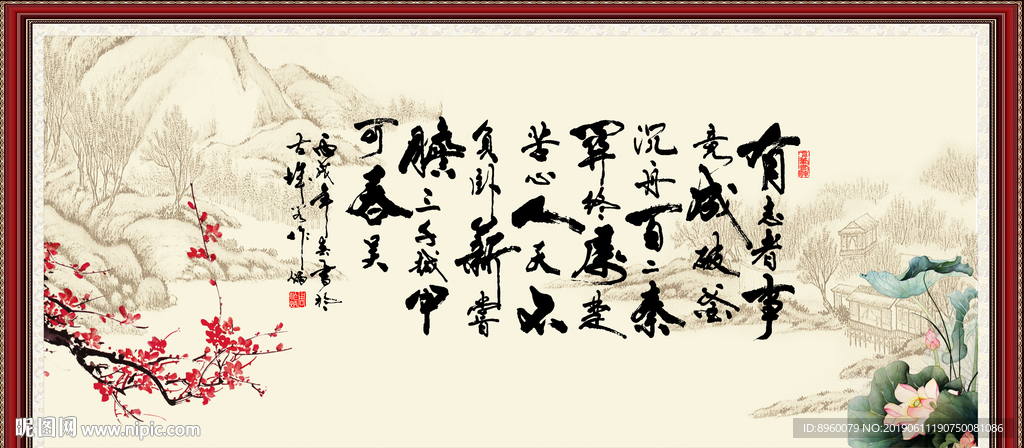 有志者事
竞成破釜
沉舟百二秦
關终属楚
苦心人天不
负卧薪嘗
膽三千越甲
可吞吴
丙戌年春書於
昵图网 www.nipic.com
ID:8960079 NO:20190611190750081086